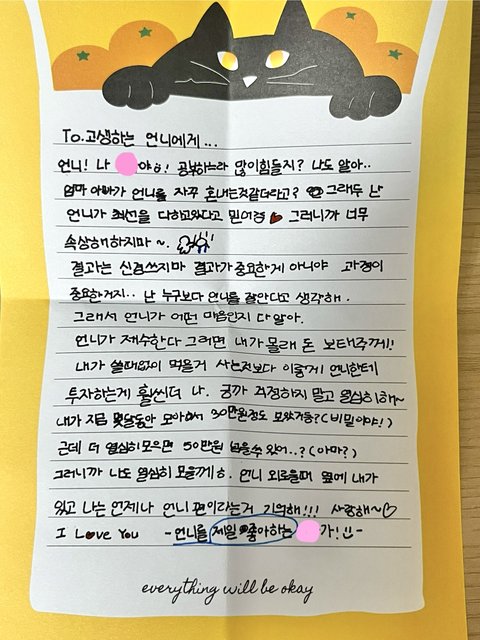 To.고생하는 언니에게...
언니! 나 야! 공부하느라 많이힘들지? 나도 알아..
엄마 아빠가 언니를 자꾸 혼내는것같더라고? 그래두 난
언니가 최선을 다하고있다고 믿어 그러니까 너무
속상해하지마~.
결과는 신경쓰지마 결과가 중요한게 아니야 과정이
중요한거지.. 난 누구보다 언니를 잘안다고 생각해.
그래서 언니가 어떤 마음인지 다알아.
언니가 재수한다 그러면 내가 몰래 돈 보태주께!
내가 쓸때없이 먹을거 사는것보다 이렇게 언니한테
투자하는게 훨씬더 나. 긍까 걱정하지 말고 열심히해~
내가 지금 몇달동안 모아서 30만원정도 모았거등?(비밀이야!)
근데 더 열심히모으면 50만원 넘을수 있어..?(아마?)
그러니까 나도 열심히 모을께. 언니 외로울때 옆에 내가
있고 나는 언제나 언니 편이라는거 기억해!!! 사랑해~♡
I Love You -언니를 제일 좋아하는 가!-
everything will be okay